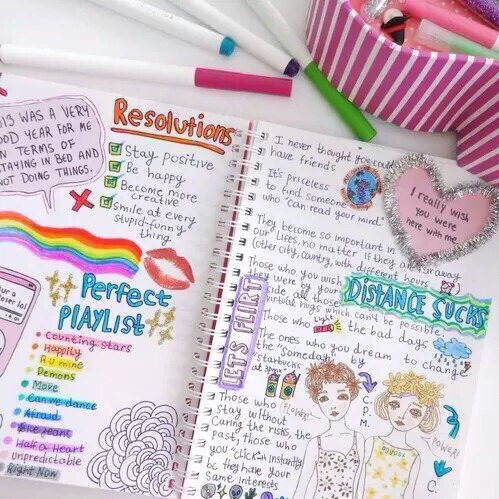 2013 WAS A VERY
GOOD YEAR FOR ME
IN TERMS OF
STAYING IN BED AND
NOT DOING THINGS.
Resolutions
Stay positive
Be happy
Become more
creative
Smile at every
stupid-funny
thing
Perfect
PLAYLIST
Counting stars
Happily
R u mine
Demons
More
Can we dance
Afraid
Blue jeans
Half a Heart
unpredictable
Right Now
ur a
loser lol
I never thought you could
have friends
It's priceless
to find someone
who "can read your mind."
They become so important in
our lifes, no matter if they are far away
(other city, country, with different hours
Those who you wish
they were by your
side all those
virtual hugs which can't be possible.
Those who the bad days
The ones you dream to change
the "Someday" by
"Starbucks
at 3pm"
Those who
stay without
Caring the risks, the
past, those who
you "click" instantly
bc they have your
Same interests
I really wish
you were
here with me.
DISTANCE SUCKS
LET'S FLIRT
(FLOWER
POWER)
C.
P.
M.
C.